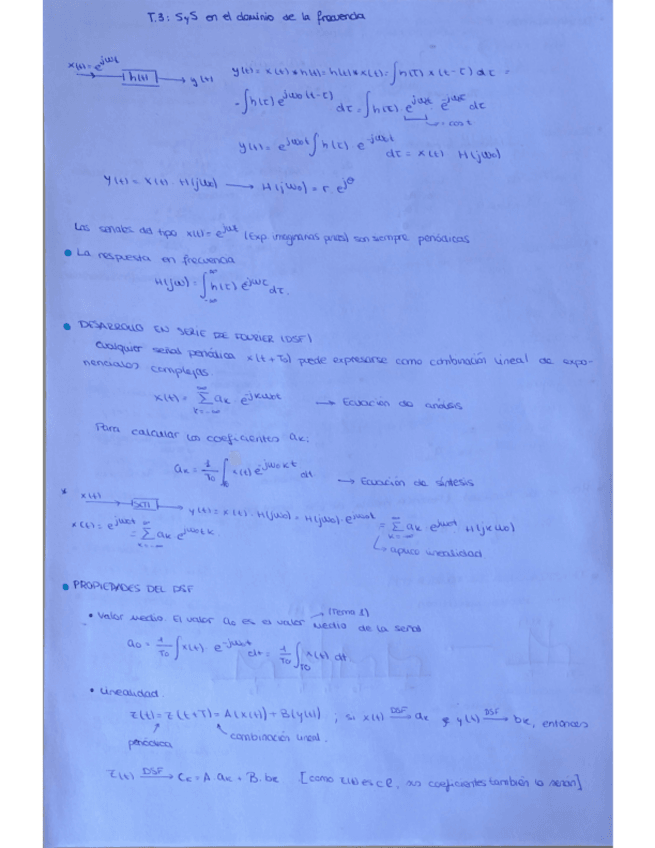 T.3: SyS en el dominio de la frecuencia
x(t)=e^jω₀t → h(t) → y(t)
y(t) = x(t) * h(t) = h(t) * x(t) = ∫h(τ) x(t-τ) dτ =
= ∫h(τ) e^jω₀(t-τ) dτ = ∫h(τ) e^jω₀t e^-jω₀τ dτ
= cost
y(t) = e^jω₀t ∫h(τ) · e^-jω₀τ dτ = x(t) · H(jω₀)
y(t) = x(t) · H(jω₀) → H(jω₀) = r · e^jθ
Las señales del tipo x(t) = e^jω₀t (Exp imaginarias puras) son siempre periódicas
• La respuesta en frecuencia
H(jω) = ∫_-∞^∞ h(τ) e^-jωτ dτ.
• DESARROLLO EN SERIE DE FOURIER (DSF)
Cualquier señal periódica x(t+T₀) puede expresarse como combinación lineal de expo-
nenciales complejas.
x(t) = Σ_k=-∞^∞ aₖ e^jkω₀t → Ecuación de análisis
Para calcular los coeficientes aₖ:
aₖ = 1/T₀ ∫ x(t) e^-jω₀kt dt → Ecuación de síntesis
* x(t) → S(T) → y(t) = x(t) · H(jω₀) = H(jω₀) · e^jω₀t = Σ_k=-∞^∞ aₖ · e^jω₀t H(jkω₀)
x(t) = e^jω₀t = Σ_k=-∞^∞ aₖ e^jω₀tk
↳ aplico linealidad
• PROPIEDADES DEL DSF
→ (Tema 1)
• Valor medio. El valor a₀ es el valor medio de la señal
a₀ = 1/T₀ ∫x(t) · e^-jω₀t dt = 1/T₀ ∫_T₀ x(t) dt.
• Linealidad.
z(t) = z(t+T) = A(x(t)) + B(y(t)) ; si x(t) —DSF→ aₖ y y(t) —DSF→ bₖ, entonces
periódica combinación lineal.
z(t) —DSF→ Cₖ = A·aₖ + B·bₖ [como z(t) es CL, sus coeficientes también lo serán]